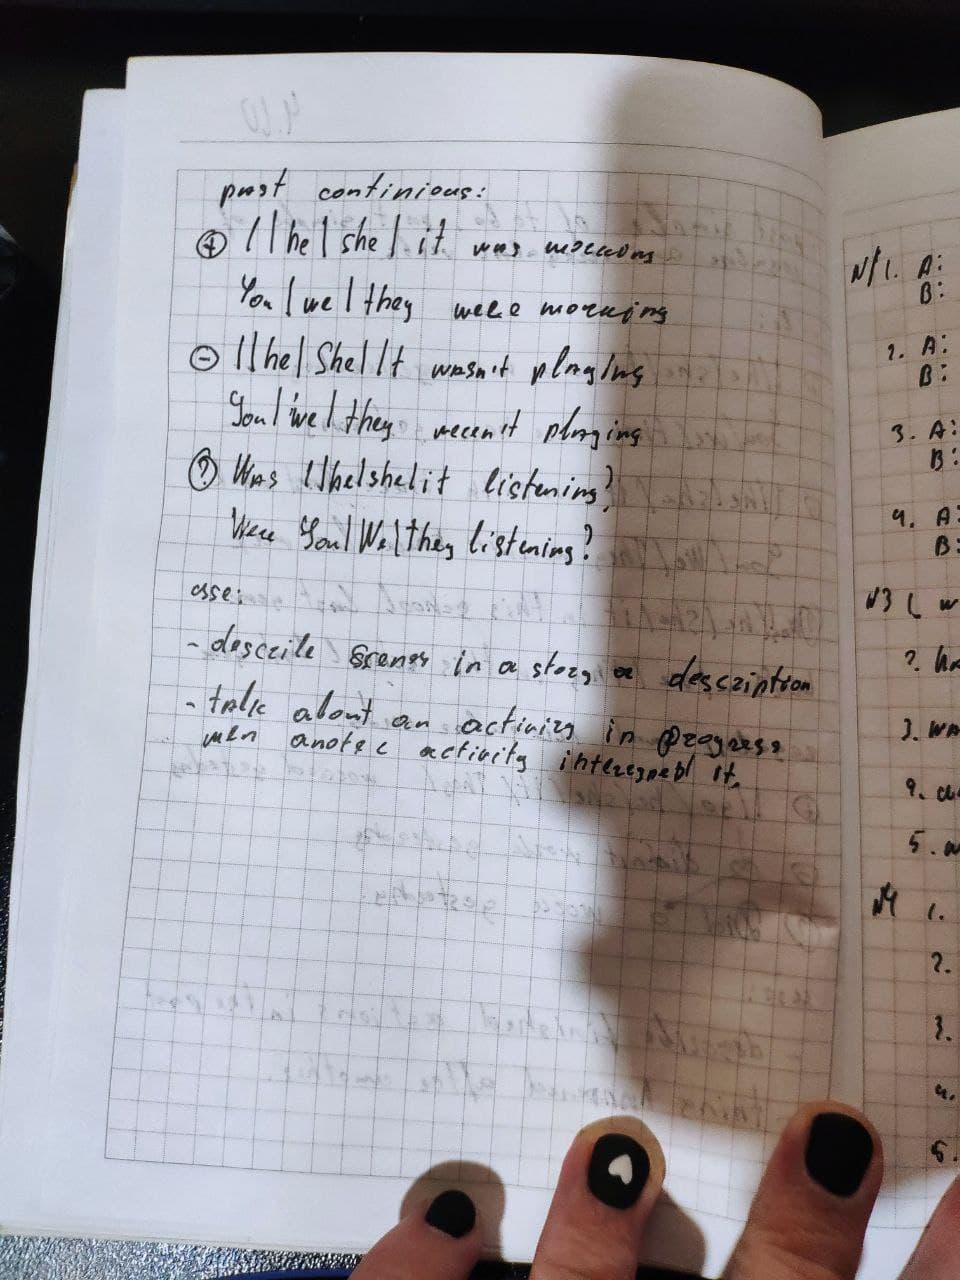 past continious:
+ I | he | she | it was
You | we | they were
- I | he | She | It wasn't playing
You | we | they weren't playing
? Was I | he | she | it listening?
Were You | We | they listening?
- describe scenes in a story or description
- talk about an activity in progress
anoter activity it.
N1 1. A:
B:
2. A:
B:
3. A:
B:
4. A:
B:
N3 1. w
2.
3. wa
4.
5.
N4 1.
2.
3.
4.
5.